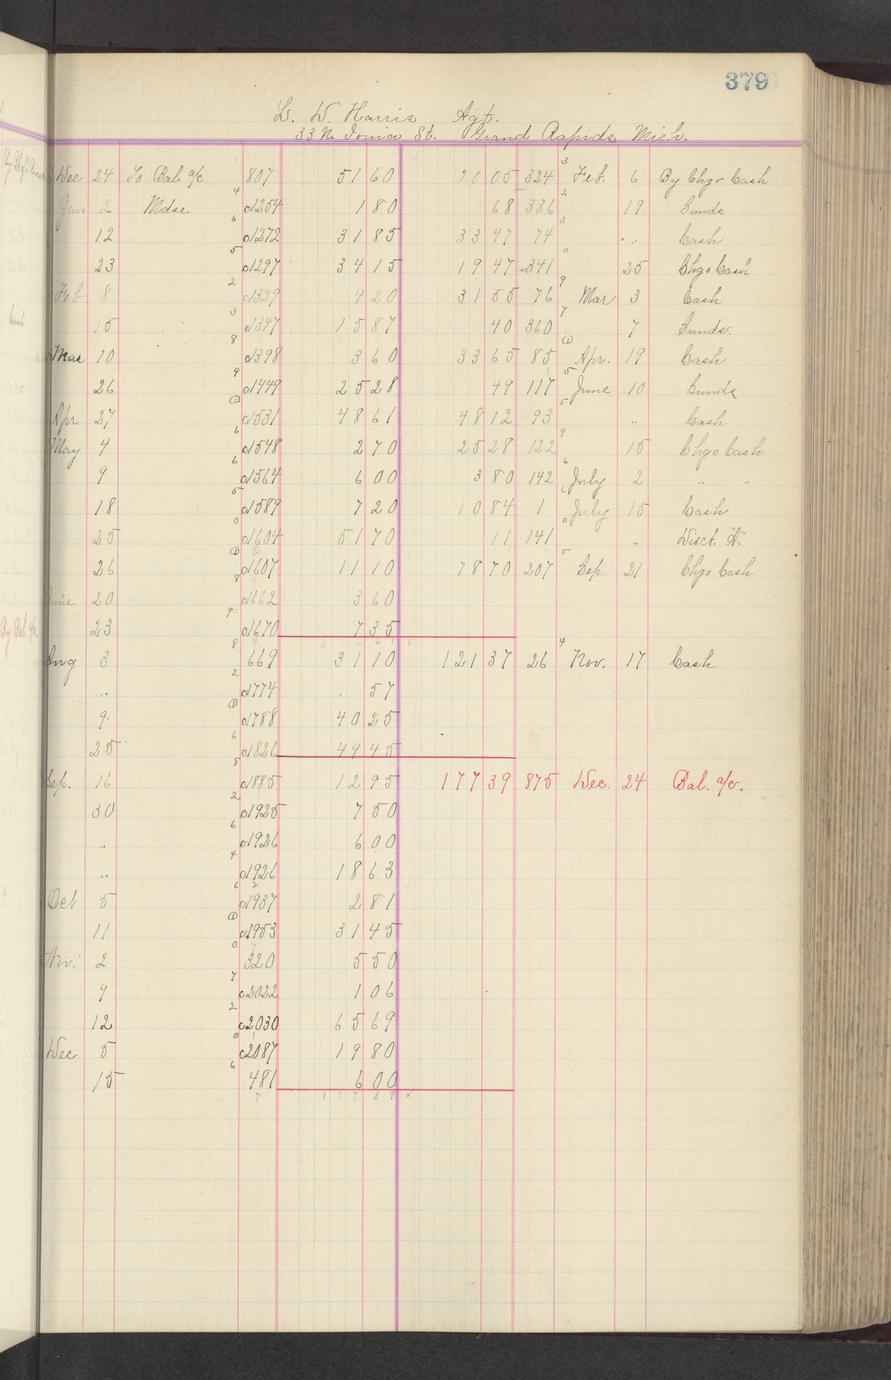 379
L. W. Harris Agt.
33 N. Ionia St. Grand Rapids Mich.
Dec 24 To Bal. a/c 807 51 60 20 05 324 3 Feb. 6 By Chgo Cash
Jan 2 Mdse 4 c1254 1 80 68 336 2 19 Sunds
12 6 c1272 31 85 33 47 74 3 " Cash
23 5 c1297 34 15 19 47 341 0 25 Chgo Cash
Feb 8 2 c1329 4 20 31 55 76 9 Mar 3 Cash
15 3 c1347 15 87 40 360 7 7 Sunds.
Mar 10 8 c1398 3 60 33 65 85 Apr. 19 Cash
26 9 c1449 25 28 49 117 5 June 10 Sunds
Apr 27 c1531 48 61 48 12 93 5 " Cash
May 4 6 c1548 2 70 25 28 122 9 15 Chgo Cash
9 6 c1564 6 00 3 80 142 6 July 2 " "
18 5 c1589 7 20 10 84 1 6 July 15 Cash
25 0 c1604 51 70 11 141 0 " Disct. A.
26 c1607 11 10 78 70 207 5 Sep. 21 Chgo Cash
June 20 8 c1662 3 60
23 9 c1670 7 35
Aug 3 8 669 31 10 121 37 26 4 Nov. 17 Cash
" 2 c1774 57
9 c1788 40 25
25 6 c1826 49 45
Sep. 16 8 c1885 12 95 177 39 875 Dec. 24 Bal. a/c.
30 2 c1925 7 50
" 6 c1926 6 00
" 4 c1926 18 63
Oct 5 6 c1937 2 81
11 c1953 31 45
Nov. 2 0 320 5 50
9 7 c2022 1 06
12 2 c2030 65 69
Dec 5 c2087 19 80
15 6 481 6 00
7 177 39 ✓